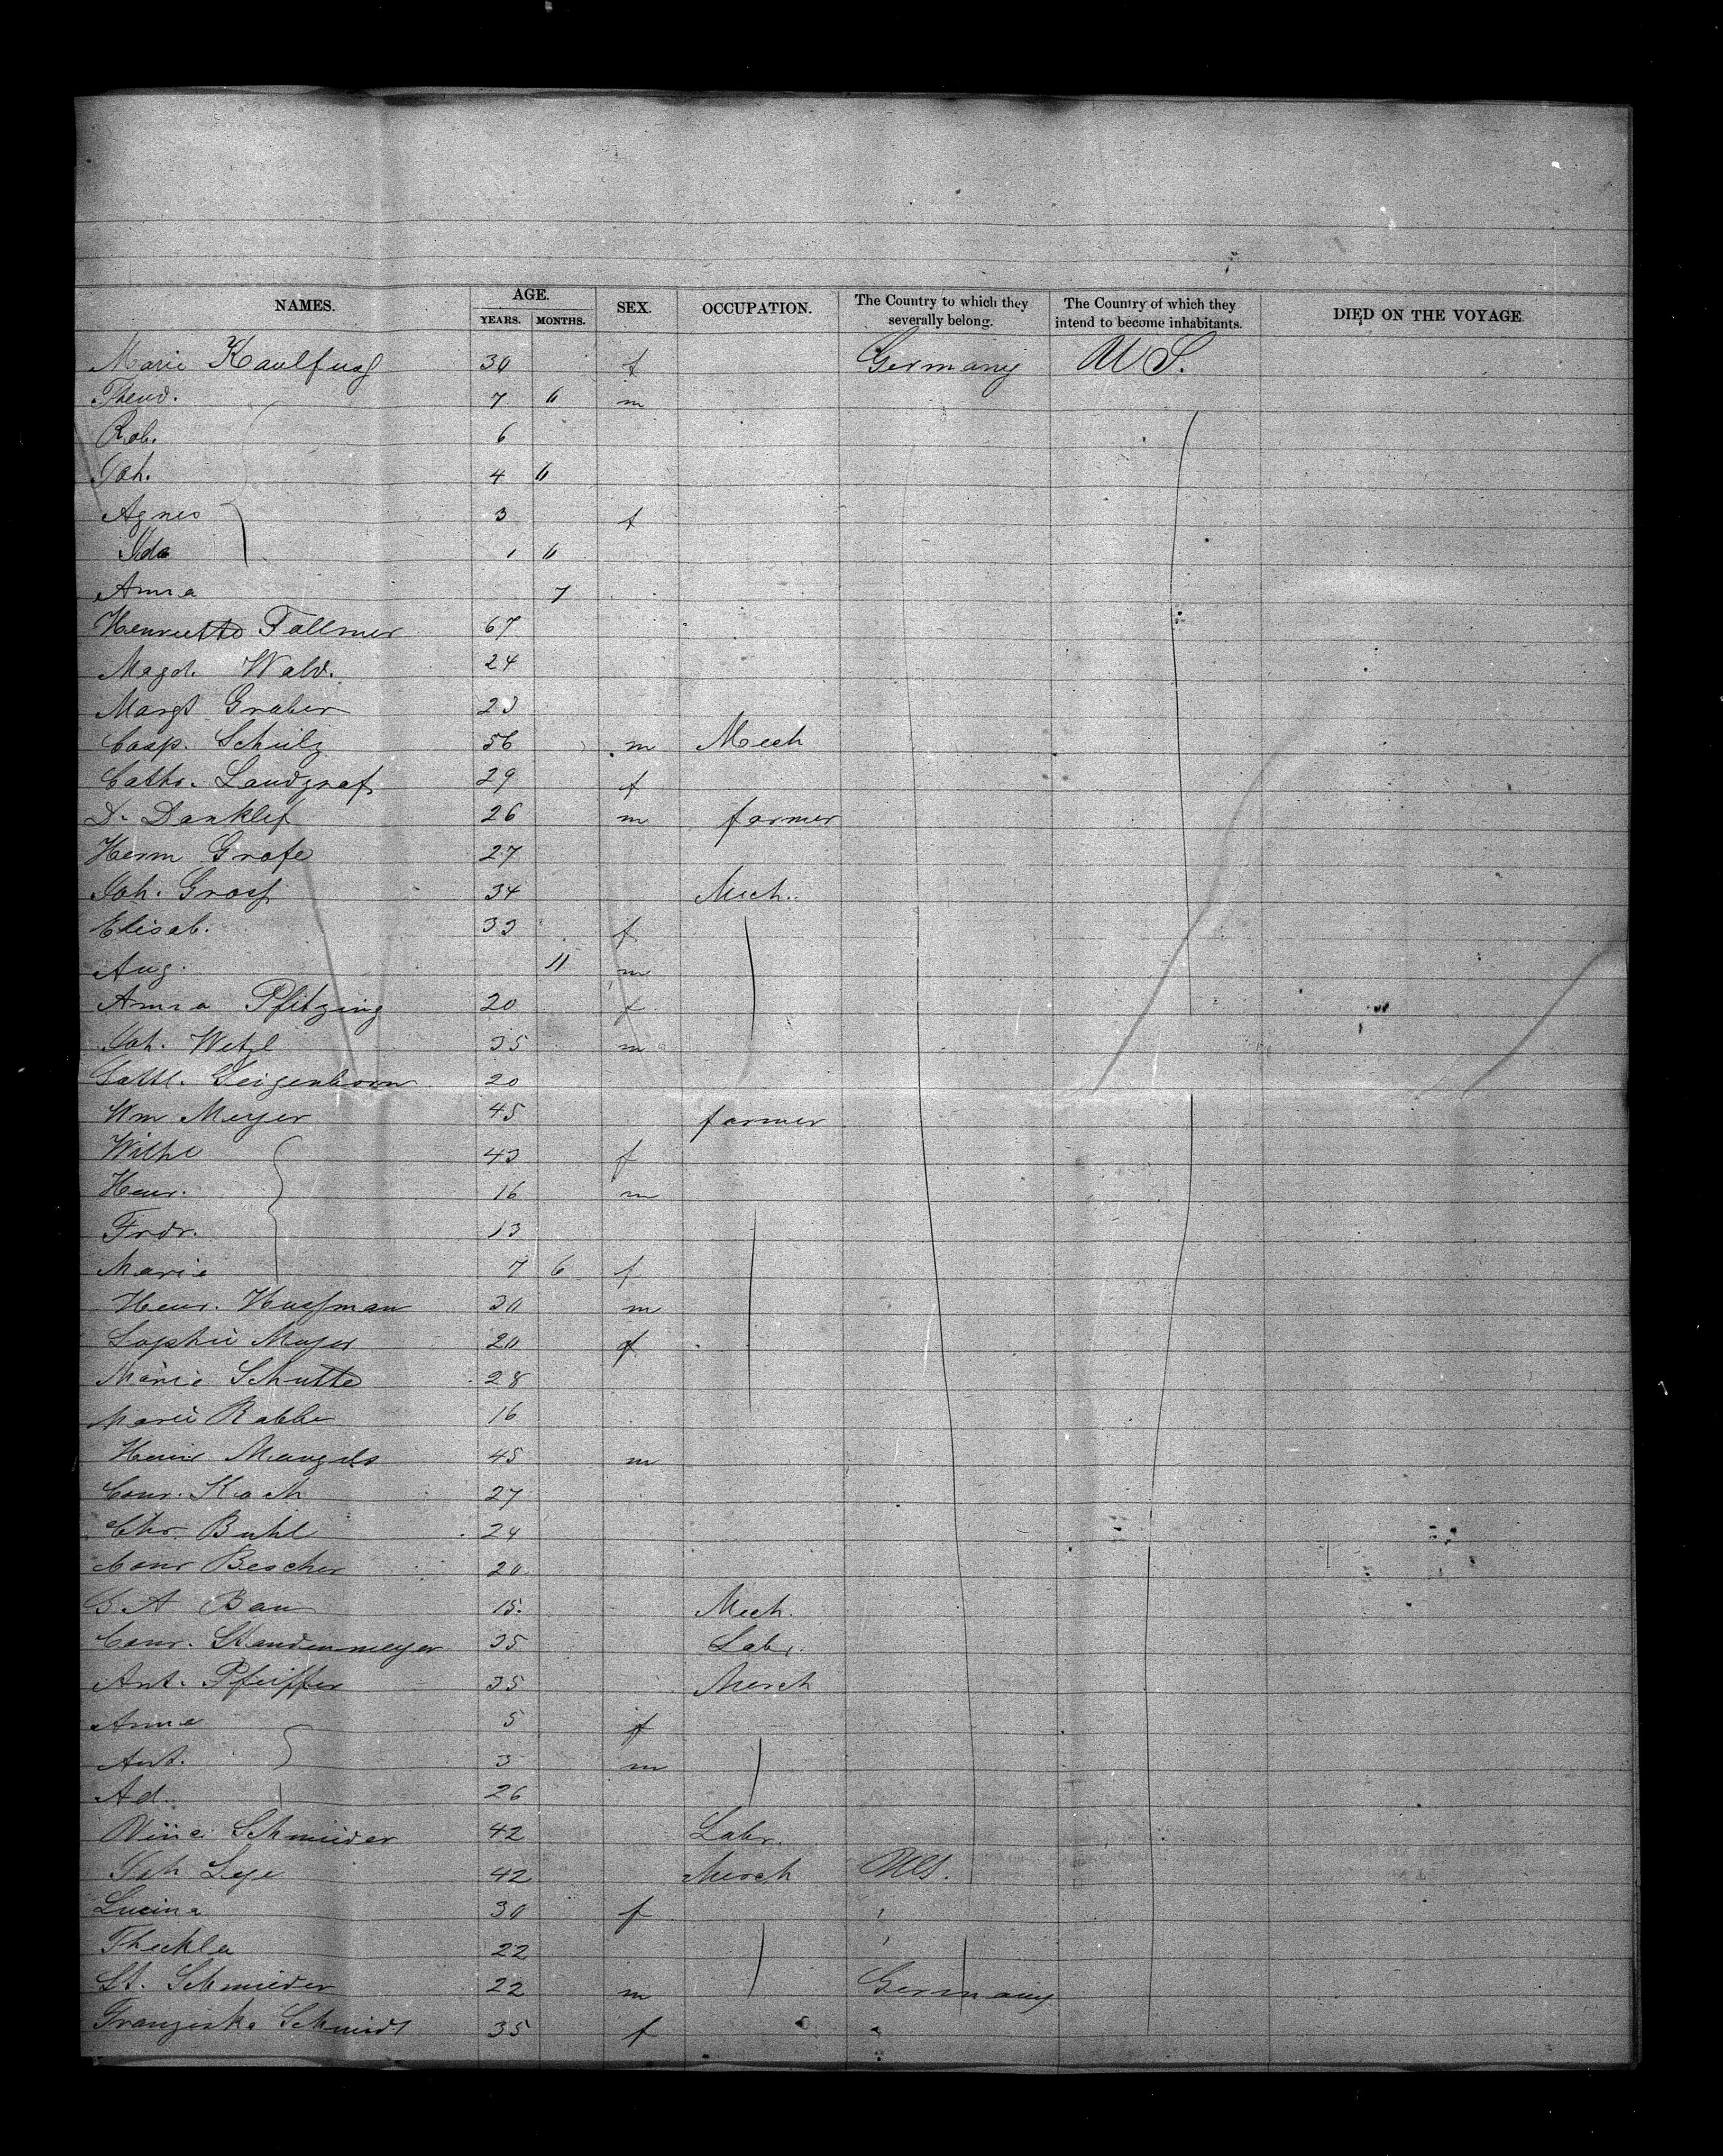 NAMES. AGE. YEARS. MONTHS. SEX. OCCUPATION. The Country to which they severally belong. The Country of which they intend to become inhabitants. DIED ON THE VOYAGE.
Marie Kaulfuss 30 f Germany U S.
Theod. 7 11 m
Rob. 6
Joh. 4 11
Agnes 3 f
Ida 1 11
Anna 7
Henriette Follmer 67
Magd. Wald. 24
Margt Graber 23
Casp. Schülz 56 m Mech
Cathr. Landgraf 29 f
D. Danklef 26 m farmer
Herm Grofe 27
Joh. Gross 34 Mech.
Elisab. 33 f
Aug. 11 m
Anna Pfitzing 20 f
Joh. Wetzl 35 m
Gottl. Geigenhorn 20
Wm Meyer 45 farmer
Wilhe 43 f
Henr. 16 m
Frdr. 13
Marie 7 6 f
Henr. Hussman 30 m
Sophie Meyer 20 f
Marie Schutte 28
Marie Rabbe 16
Heinr Mangels 45 m
Conr. Koch 27
Chr. Buhl 24
Conr Bescher 20
G A Bau 15. Mech.
Conr. Standenmeyer 35 Labr.
Ant. Pfeiffer 35 Merch
Anna 5 f
Ant. 3 m
Ad. 26
Schmieder 42 Labr.
42 Merch US.
Lucina 30 f
Theckla 22
St. Schmieder 22 m Germany
Franziska Schmidt 35 f "